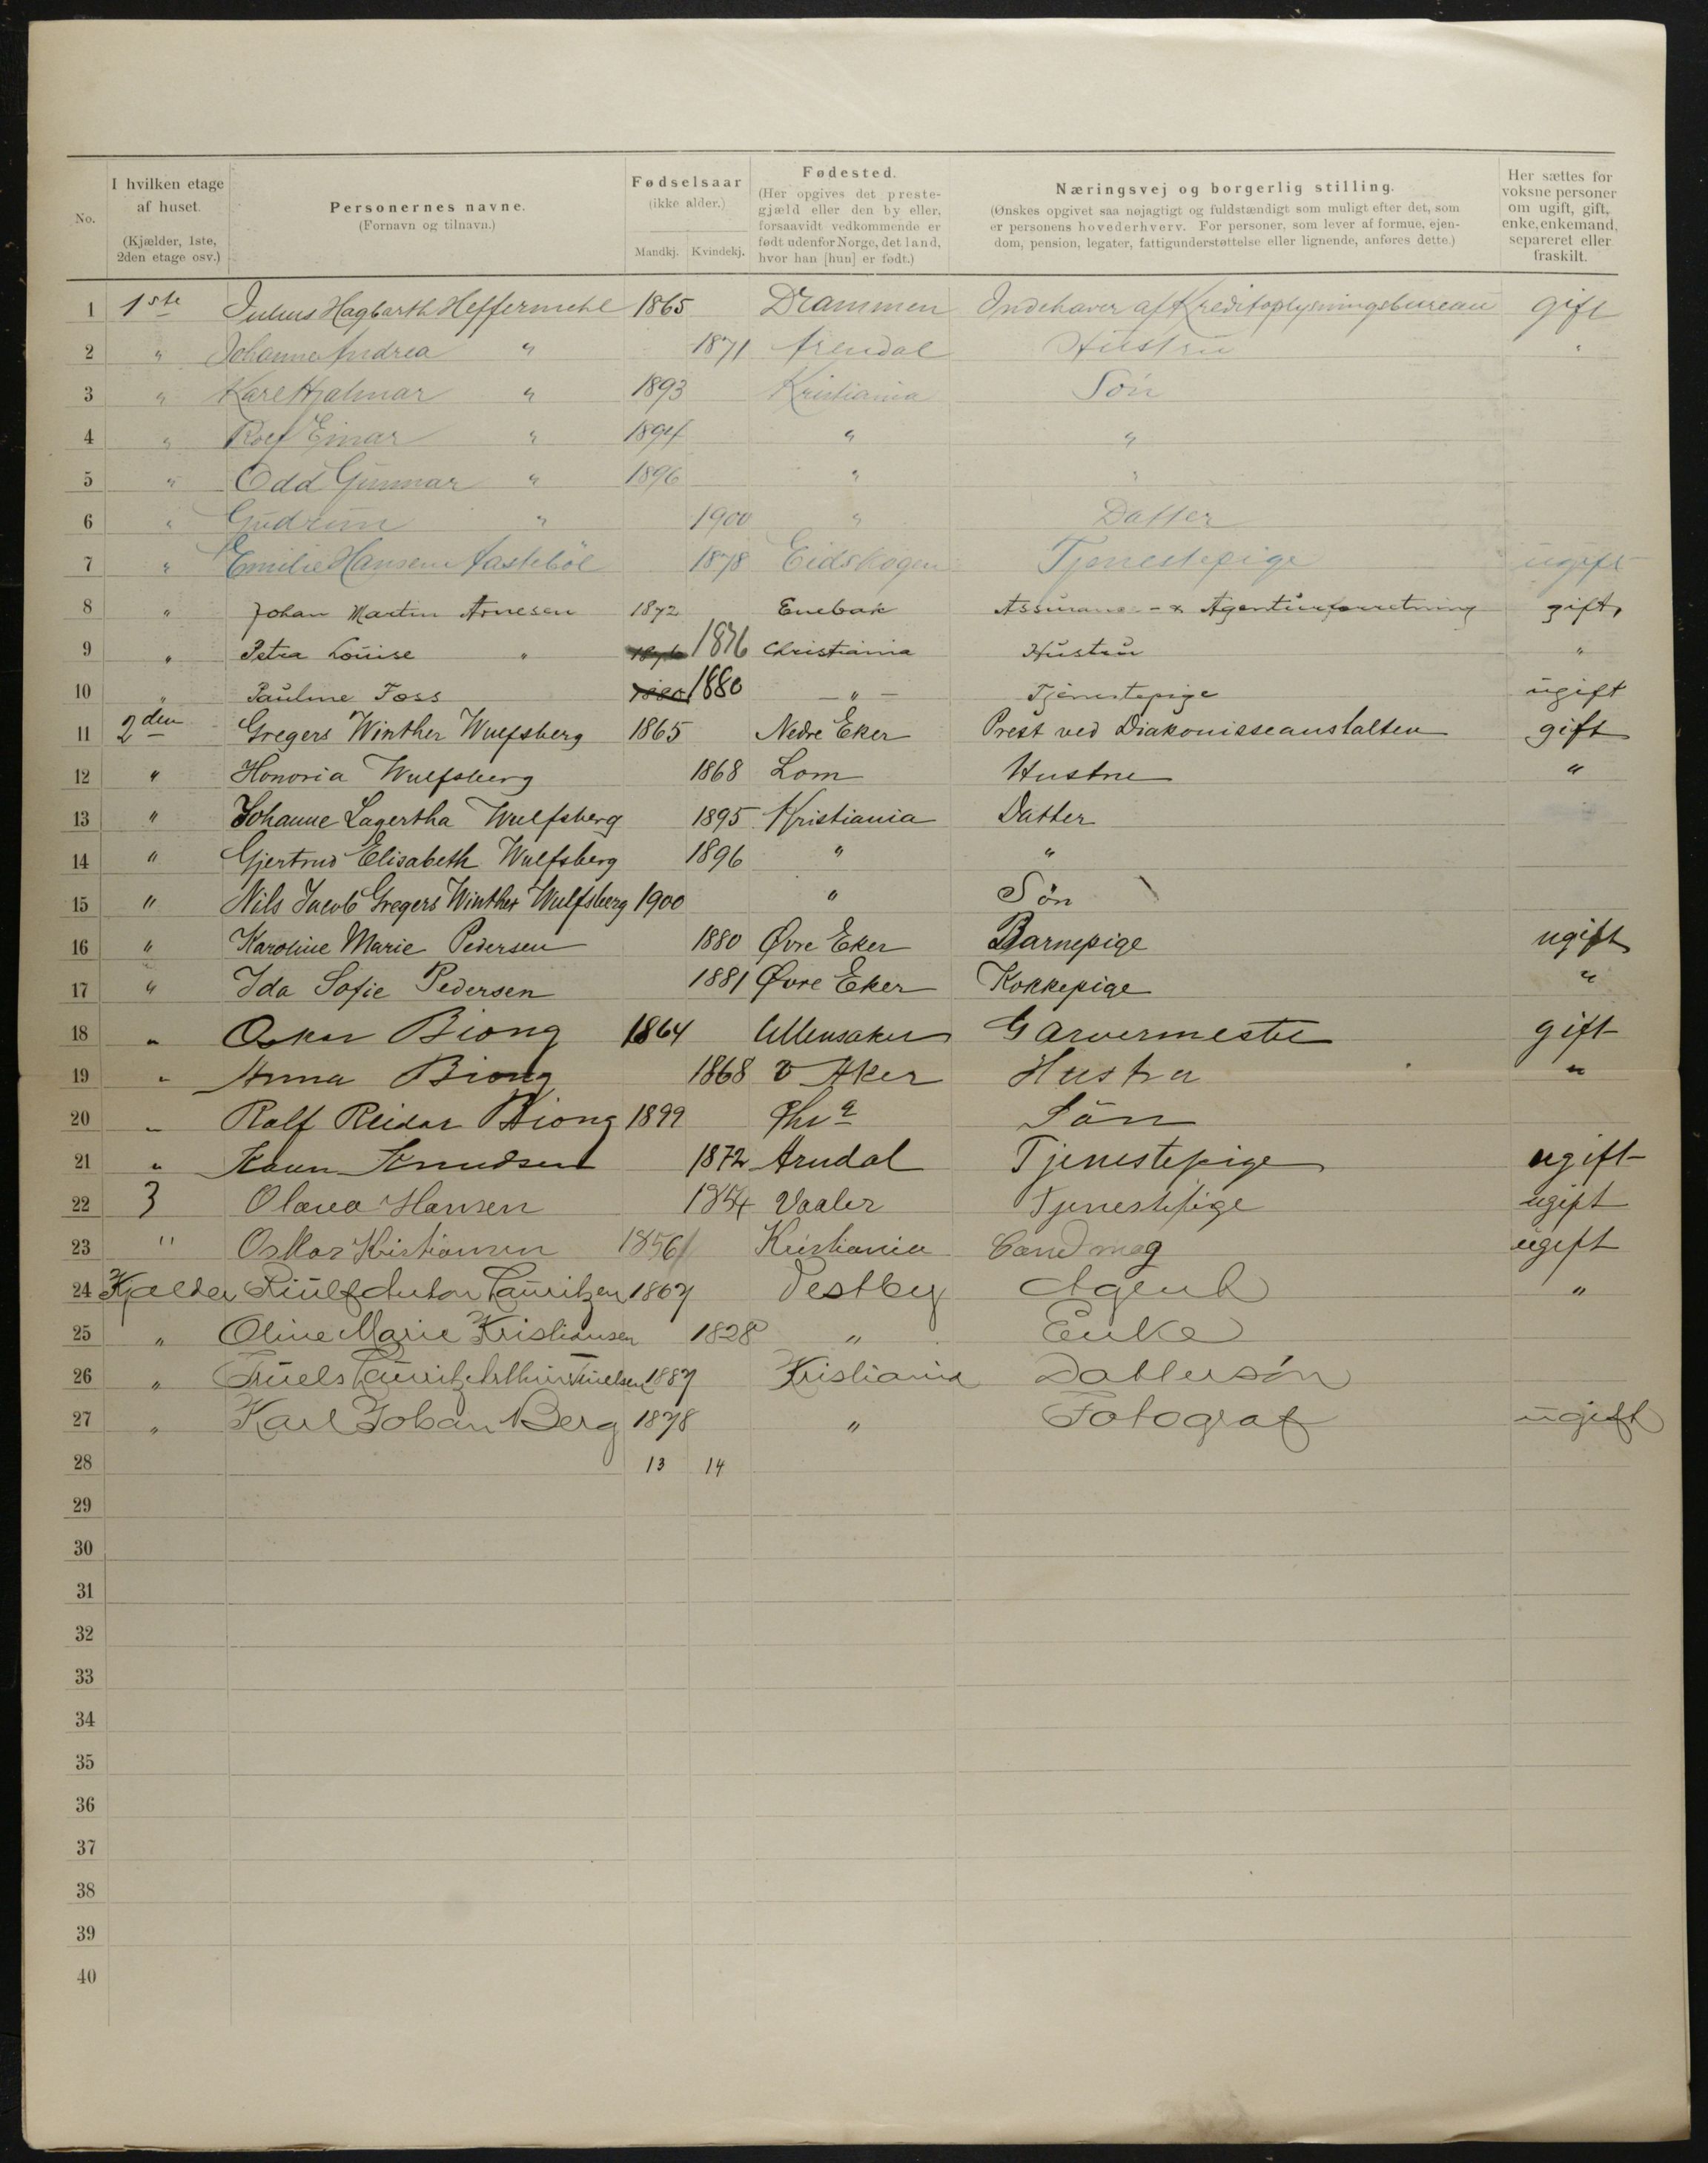 No.
I hvilken etage af huset. (Kjælder, 1ste, 2den etage osv.)
Personernes navne. (Fornavn og tilnavn.)
Fødselsaar (ikke alder.) Mandkj. Kvindekj.
Fødested. (Her opgives det prestegjæld eller den by eller, forsaavidt vedkommende er født udenfor Norge, det land, hvor han [hun] er født.)
Næringsvej og borgerlig stilling.
(Ønskes opgivet saa nøjagtigt og fuldstændigt som muligt efter det, som er personens hovederhverv. For personer, som lever af formue, ejendom, pension, legater, fattigunderstøttelse eller lignende, anføres dette.)
Her sættes for voksne personer om ugift, gift, enke, enkemand, separeret eller fraskilt.
1 1ste Julius Hagbarth Heffermehl 1865 Drammen Indehaver af Kreditoplysningsbureau gift
2 " Johanne Andrea " 1871 Arendal Hustru "
3 " Karl Hjalmar " 1893 Kristiania Søn
4 " Rolf Einar " 1894 " "
5 " Odd Gunnar " 1896 " "
6 " Gudrun " 1900 " Datter
7 " Emilie Hansen Aastebøl 1878 Eidskogen Tjenestepige ugift
8 " Johan Martin Arnesen 1872 Enebak Assurance- & Agenturforretning gift
9 " Petra Louise " 1876 1876 Christiania Hustru "
10 " Pauline Foss 1880 1880 - " - Tjenestepige ugift
11 2den Gregers Winther Wulfsberg 1865 Nedre Eker Prest ved Diakonisseanstalten gift
12 " Honoria Wulfsberg 1868 Lom Hustru "
13 " Johanne Lagertha Wulfsberg 1895 Kristiania Datter
14 " Gjertrud Elisabeth Wulfsberg 1896 " "
15 " Nils Jacob Gregers Winther Wulfsberg 1900 " Søn
16 " Karoline Marie Pedersen 1880 Øvre Eker Barnepige ugift
17 " Ida Sofie Pedersen 1881 Øvre Eker Kokkepige "
18 " Oskar Biong 1864 Ullensaker Garvermester gift
19 " Anna Biong 1868 V Aker Hustru "
20 " Rolf Reidar Biong 1899 Chra Sön
21 " Karen Knudsen 1872 Arendal Tjenestepige ugift
22 3 Olava Hansen 1854 Vaaler Tjenestepige ugift
23 " Oskar Kristiansen 1856 Kristiania Cand mag ugift
24 Kjælder Anton Lauritzen 1867 Vestby Agent "
25 " Oline Marie Kristiansen 1828 " Enke
26 " Truels Lauritz Truelsen 1887 Kristiania Dattersøn
27 " Karl Johan Berg 1878 " Fotograf ugift
28 13 14
29
30
31
32
33
34
35
36
37
38
39
40